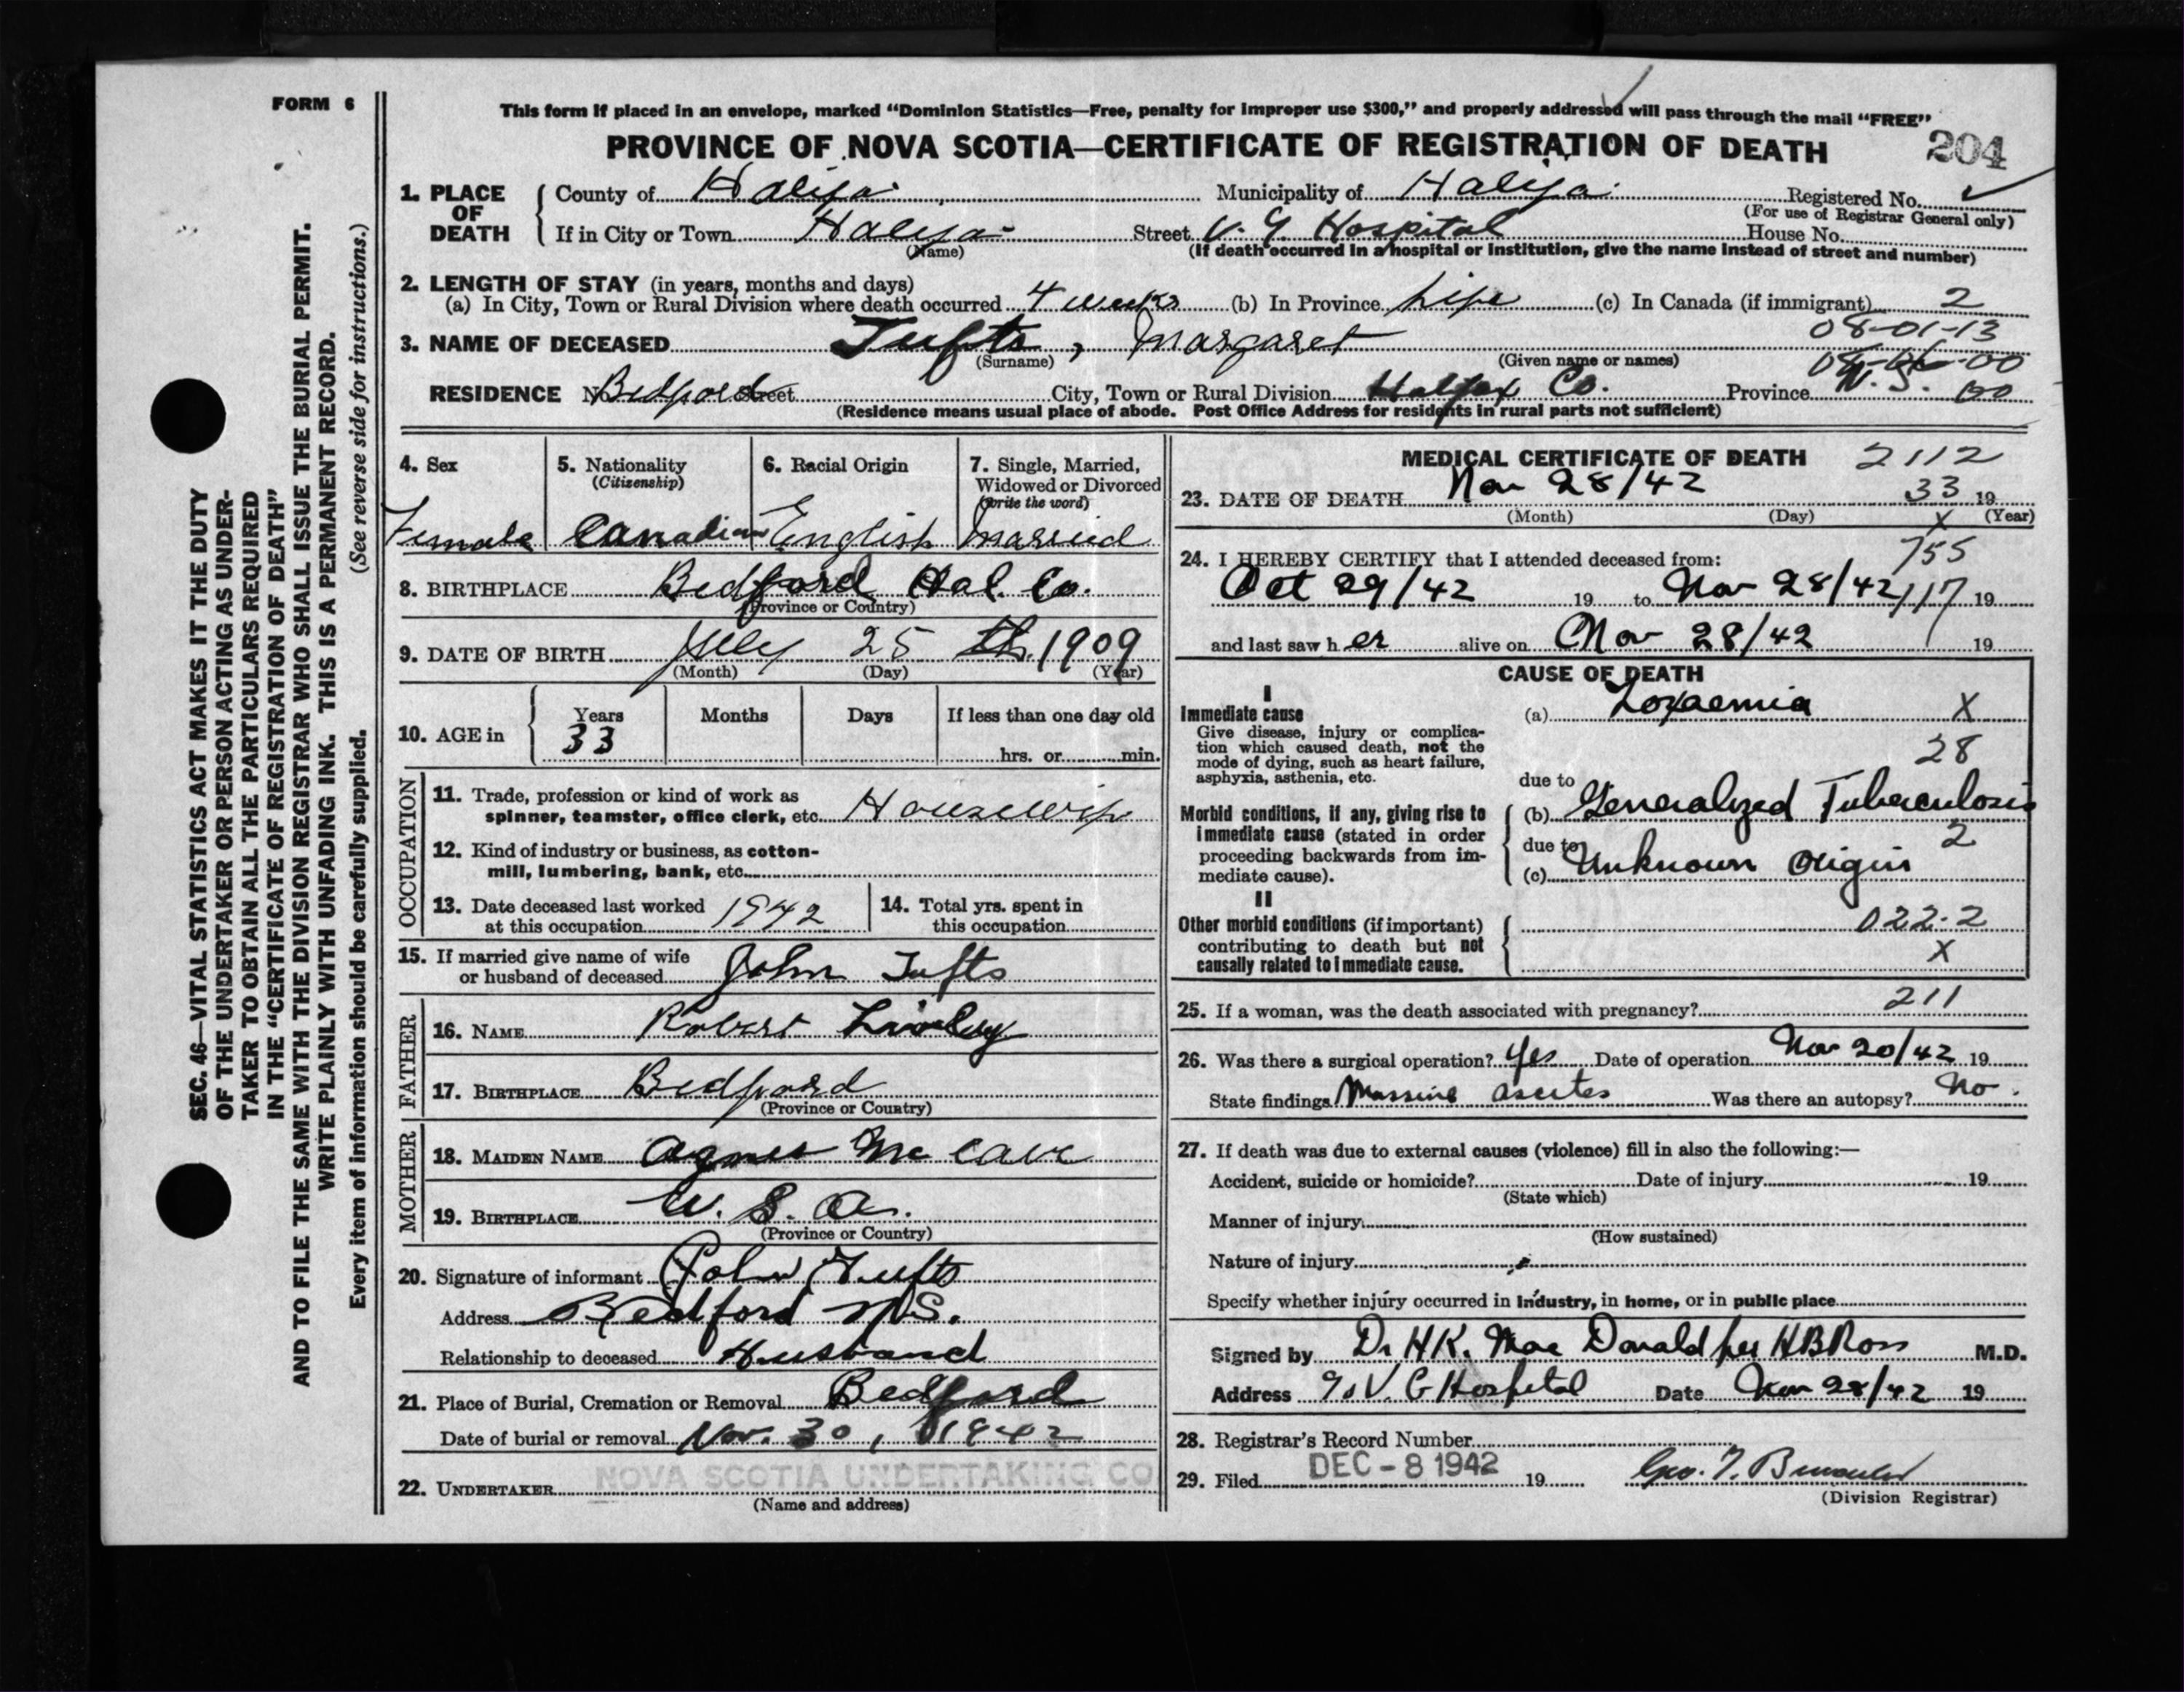 FORM 6
SEC. 46—VITAL STATISTICS ACT MAKES IT THE DUTY
OF THE UNDERTAKER OR PERSON ACTING AS UNDER-
TAKER TO OBTAIN ALL THE PARTICULARS REQUIRED
IN THE "CERTIFICATE OF REGISTRATION OF DEATH"
AND TO FILE THE SAME WITH THE DIVISION REGISTRAR WHO SHALL ISSUE THE BURIAL PERMIT.
WRITE PLAINLY WITH UNFADING INK. THIS IS A PERMANENT RECORD.
Every item of information should be carefully supplied. (See reverse side for instructions.)
This form if placed in an envelope, marked "Dominion Statistics—Free, penalty for improper use $300," and properly addressed will pass through the mail "FREE"
PROVINCE OF NOVA SCOTIA—CERTIFICATE OF REGISTRATION OF DEATH 204
1. PLACE OF DEATH County of Halifax Municipality of Halifax Registered No.
(For use of Registrar General only)
If in City or Town Halifax Street V. G Hospital House No.
(Name) (If death occurred in a hospital or institution, give the name instead of street and number)
2. LENGTH OF STAY (in years, months and days)
(a) In City, Town or Rural Division where death occurred 4 weeks (b) In Province life (c) In Canada (if immigrant) 2
08-01-13
3. NAME OF DECEASED Tufts, Margaret
(Surname) (Given name or names)
RESIDENCE No Bedford Street City, Town or Rural Division Halifax Co. Province N. S. 00
(Residence means usual place of abode. Post Office Address for residents in rural parts not sufficient)
4. Sex
Female
5. Nationality
(Citizenship)
Canadian
6. Racial Origin
English
7. Single, Married,
Widowed or Divorced
(write the word)
Married
8. BIRTHPLACE Bedford Hal. Co.
(Province or Country)
9. DATE OF BIRTH July 25 th. 1909
(Month) (Day) (Year)
10. AGE in Years Months Days If less than one day old
33 hrs. or min.
OCCUPATION
11. Trade, profession or kind of work as
spinner, teamster, office clerk, etc. Housewife
12. Kind of industry or business, as cotton-
mill, lumbering, bank, etc.
13. Date deceased last worked
at this occupation 1942
14. Total yrs. spent in
this occupation
15. If married give name of wife
or husband of deceased John Tufts
FATHER
16. NAME Robert
17. BIRTHPLACE Bedford
(Province or Country)
MOTHER
18. MAIDEN NAME Agnes Mc Cave
19. BIRTHPLACE U. S. A.
(Province or Country)
20. Signature of informant John Tufts
Address Bedford N.S.
Relationship to deceased Husband
21. Place of Burial, Cremation or Removal Bedford
Date of burial or removal Nov. 30, 1942
22. UNDERTAKER NOVA SCOTIA UNDERTAKING CO
(Name and address)
MEDICAL CERTIFICATE OF DEATH 2112
23. DATE OF DEATH Nov 28/42 33 19
(Month) (Day) (Year)
X
24. I HEREBY CERTIFY that I attended deceased from: 755
Oct 29/42 19 to Nov 28/42 117 19
and last saw h er alive on Nov 28/42 19
CAUSE OF DEATH
I
Immediate cause
Give disease, injury or complica-
tion which caused death, not the
mode of dying, such as heart failure,
asphyxia, asthenia, etc.
(a) Toxaemia X
28
due to
Morbid conditions, if any, giving rise to
immediate cause (stated in order
proceeding backwards from im-
mediate cause).
(b) Generalized Tuberculosis
2
due to
(c) Unknown Origin
II
Other morbid conditions (if important)
contributing to death but not
causally related to immediate cause.
022.2
X
25. If a woman, was the death associated with pregnancy? 211
26. Was there a surgical operation? Yes Date of operation Nov 20/42 19
State findings Massive ascites Was there an autopsy? No.
27. If death was due to external causes (violence) fill in also the following:—
Accident, suicide or homicide? Date of injury 19
(State which)
Manner of injury
(How sustained)
Nature of injury
Specify whether injury occurred in industry, in home, or in public place
Signed by Dr H.K. Mac Donald per H B Ross M.D.
Address V. G Hospital Date Nov 28/42 19
28. Registrar's Record Number
29. Filed DEC - 8 1942 19
(Division Registrar)